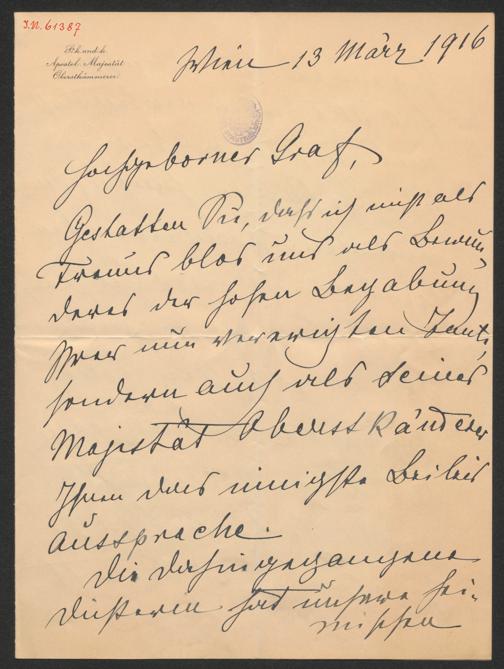 I.N. 61387
K. und k.
Apostol. Majestät
Oberstkämmerer
Wien 13 März 1916
Hochgeborner Graf,
Gestatten Sie, dass ich nicht als
Freund blos und als Bewun
derer der hohen Begabung
Ihrer nun verewigten Tante,
sondern auch als Seiner
Majestät Oberstkämmerer
Ihnen das innigste Beileid
ausspreche.
Die dahingegangene
Dichterin hat unsere hei-
mischen